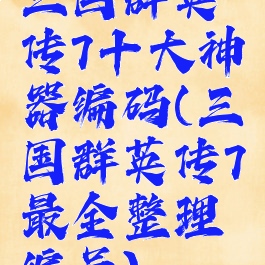 三国群英
传7十大神
器编码(三
国群英传7
最全整理
编号)